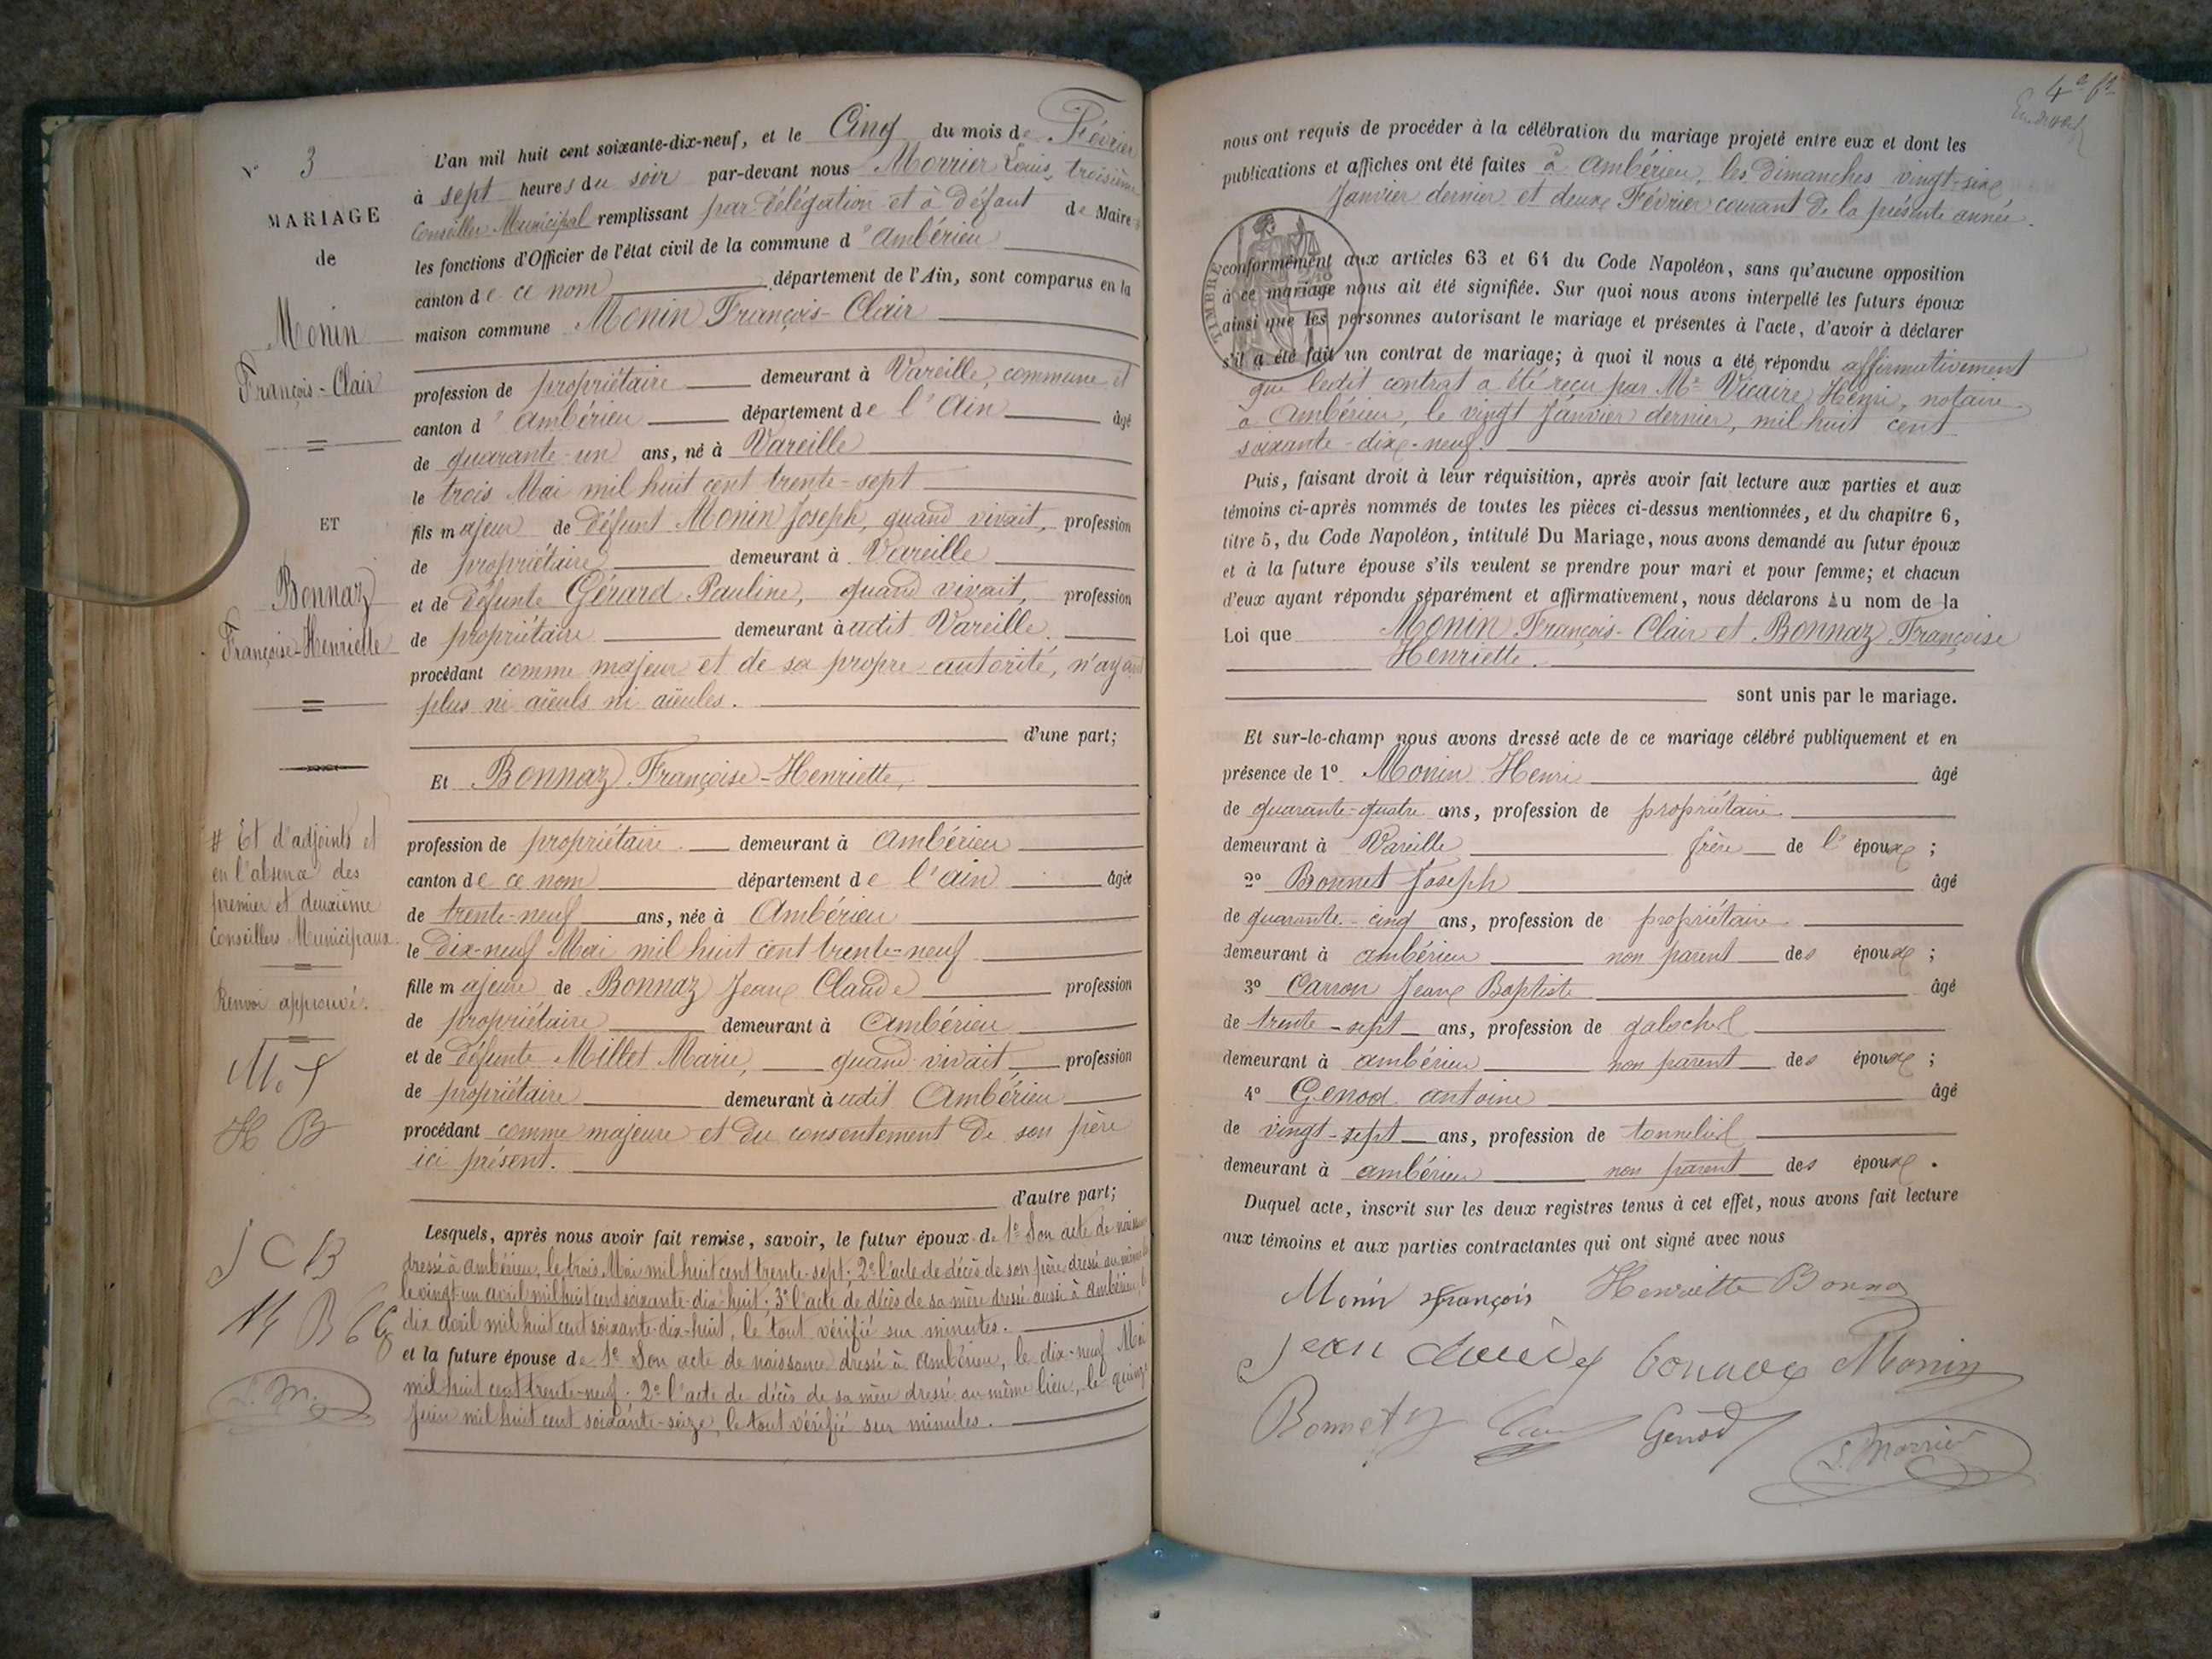 N° 3
MARIAGE
de
Monin
François-Clair
ET
Bonnaz
Françoise-Henriette
# Et d'adjoints et
en l'absence des
premier et deuxième
Conseillers Municipaux.
Renvoi approuvé.
H B
J C B
L. M.
L'an mil huit cent soixante-dix-neuf, et le Cinq du mois de Février
à sept heures du soir par-devant nous Morrier Louis, troisième
Conseiller Municipal remplissant par délégation et à défaut de Maire #
les fonctions d'Officier de l'état civil de la commune d'Ambérieu
canton de ce nom département de l'Ain, sont comparus en la
maison commune Monin François-Clair
profession de propriétaire demeurant à Vareille, commune et
canton d'Ambérieu département de l'Ain âgé
de quarante-un ans, né à Vareille
le trois Mai mil huit cent trente-sept
fils majeur de défunt Monin Joseph, quand vivait, profession
de propriétaire demeurant à Vareille
et de défunte Gérard Pauline, quand vivait, profession
de propriétaire demeurant audit Vareille.
procédant comme majeur et de sa propre autorité, n'ayant
plus ni aïeuls ni aïeules.
d'une part;
Et Bonnaz Françoise-Henriette,
profession de propriétaire demeurant à Ambérieu
canton de ce nom département de l'Ain âgée
de trente-neuf ans, née à Ambérieu
le dix-neuf Mai mil huit cent trente-neuf
fille majeure de Bonnaz Jean Claude profession
de propriétaire demeurant à Ambérieu
et de défunte Millet Marie, quand vivait profession
de propriétaire demeurant audit Ambérieu
procédant comme majeure et du consentement de son père
ici présent.
d'autre part;
Lesquels, après nous avoir fait remise, savoir, le futur époux de 1° Son acte de naissance
dressé à Ambérieu, le trois Mai mil huit cent trente-sept; 2° l'acte de décès de son père dressé au même
le vingt-un avril mil huit cent soixante-dix-huit; 3° l'acte de décès de sa mère dressé aussi à Ambérieu, le
dix avril mil huit cent soixante-dix-huit, le tout vérifié sur minutes.
et la future épouse de 1° Son acte de naissance dressé à Ambérieu, le dix-neuf Mai
mil huit cent trente-neuf; 2° l'acte de décès de sa mère dressé au même lieu, le quinze
Juin mil huit cent soixante-seize, le tout vérifié sur minutes.
nous ont requis de procéder à la célébration du mariage projeté entre eux et dont les
publications et affiches ont été faites à Ambérieu, les dimanches vingt-six
Janvier dernier et deux Février courant de la présente année.
TIMBRE
conformément aux articles 63 et 64 du Code Napoléon, sans qu'aucune opposition
à ce mariage nous ait été signifiée. Sur quoi nous avons interpellé les futurs époux
ainsi que les personnes autorisant le mariage et présentes à l'acte, d'avoir à déclarer
s'il a été fait un contrat de mariage; à quoi il nous a été répondu affirmativement
que ledit contrat a été reçu par Me Vicaire Henri, notaire
à Ambérieu, le vingt Janvier dernier, mil huit cent
soixante-dix-neuf.
Puis, faisant droit à leur réquisition, après avoir fait lecture aux parties et aux
témoins ci-après nommés de toutes les pièces ci-dessus mentionnées, et du chapitre 6,
titre 5, du Code Napoléon, intitulé Du Mariage, nous avons demandé au futur époux
et à la future épouse s'ils veulent se prendre pour mari et pour femme; et chacun
d'eux ayant répondu séparément et affirmativement, nous déclarons Au nom de la
Loi que Monin François-Clair et Bonnaz Françoise
Henriette.
sont unis par le mariage.
Et sur-le-champ nous avons dressé acte de ce mariage célébré publiquement et en
présence de 1° Monin Henri âgé
de quarante-quatre ans, profession de propriétaire
demeurant à Vareille frère de l'époux;
2° Bonnet Joseph âgé
de quarante-cinq ans, profession de propriétaire
demeurant à ambérieu non parent des époux;
3° Carron Jean Baptiste âgé
de trente-sept ans, profession de
demeurant à ambérieu non parent des époux;
4° Genod antoine âgé
de vingt-sept ans, profession de tonnelier
demeurant à ambérieu non parent des époux.
Duquel acte, inscrit sur les deux registres tenus à cet effet, nous avons fait lecture
aux témoins et aux parties contractantes qui ont signé avec nous
Monin françois Henriette Bonnaz
Monin
Bonnet Genod
L. Morrier